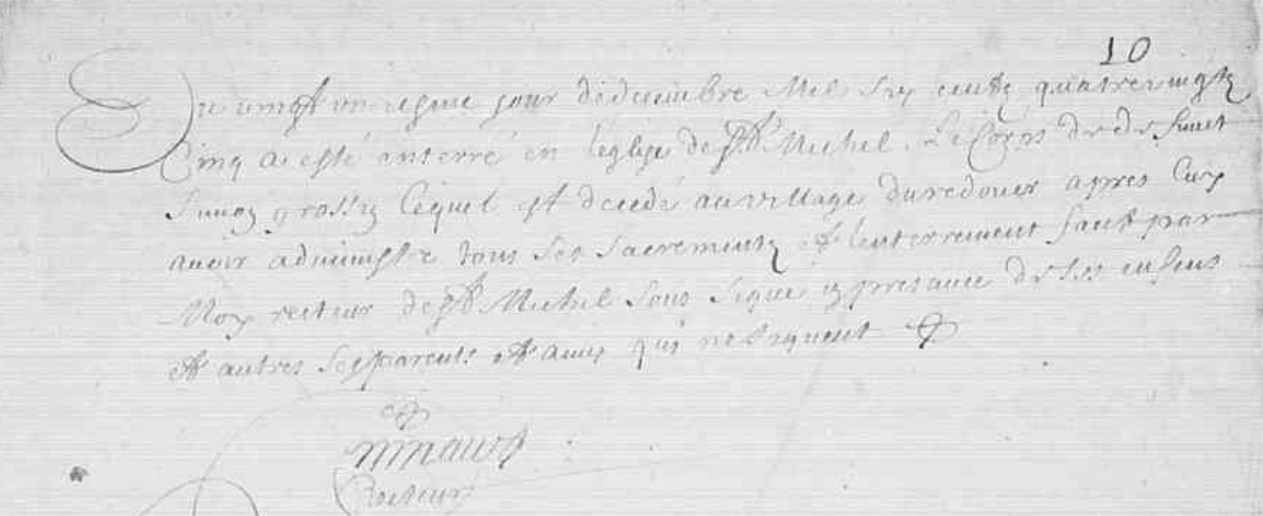 10
Du vingt un iesme jour de decembre Mil Six cents quatrevingts
Cinq a esté enterré en l'eglise de St Michel. Le Corps de defunct
lequel est decedé au village apres luy
avoir administre tous ses sacrements et l'enterrement faict par
Moy recteur de St Michel sous signé en presance de ses enfens
et autres ses parents et amis qui ne signent
Recteur